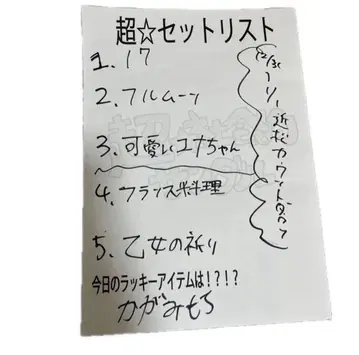 超☆セットリスト
1. 17
2. フルムーン
3. 可愛いユナちゃん
4. フランス料理
5. 乙女の祈り
今日のラッキーアイテムは!?!?
かがみもち
12/31
近松カウントダウン